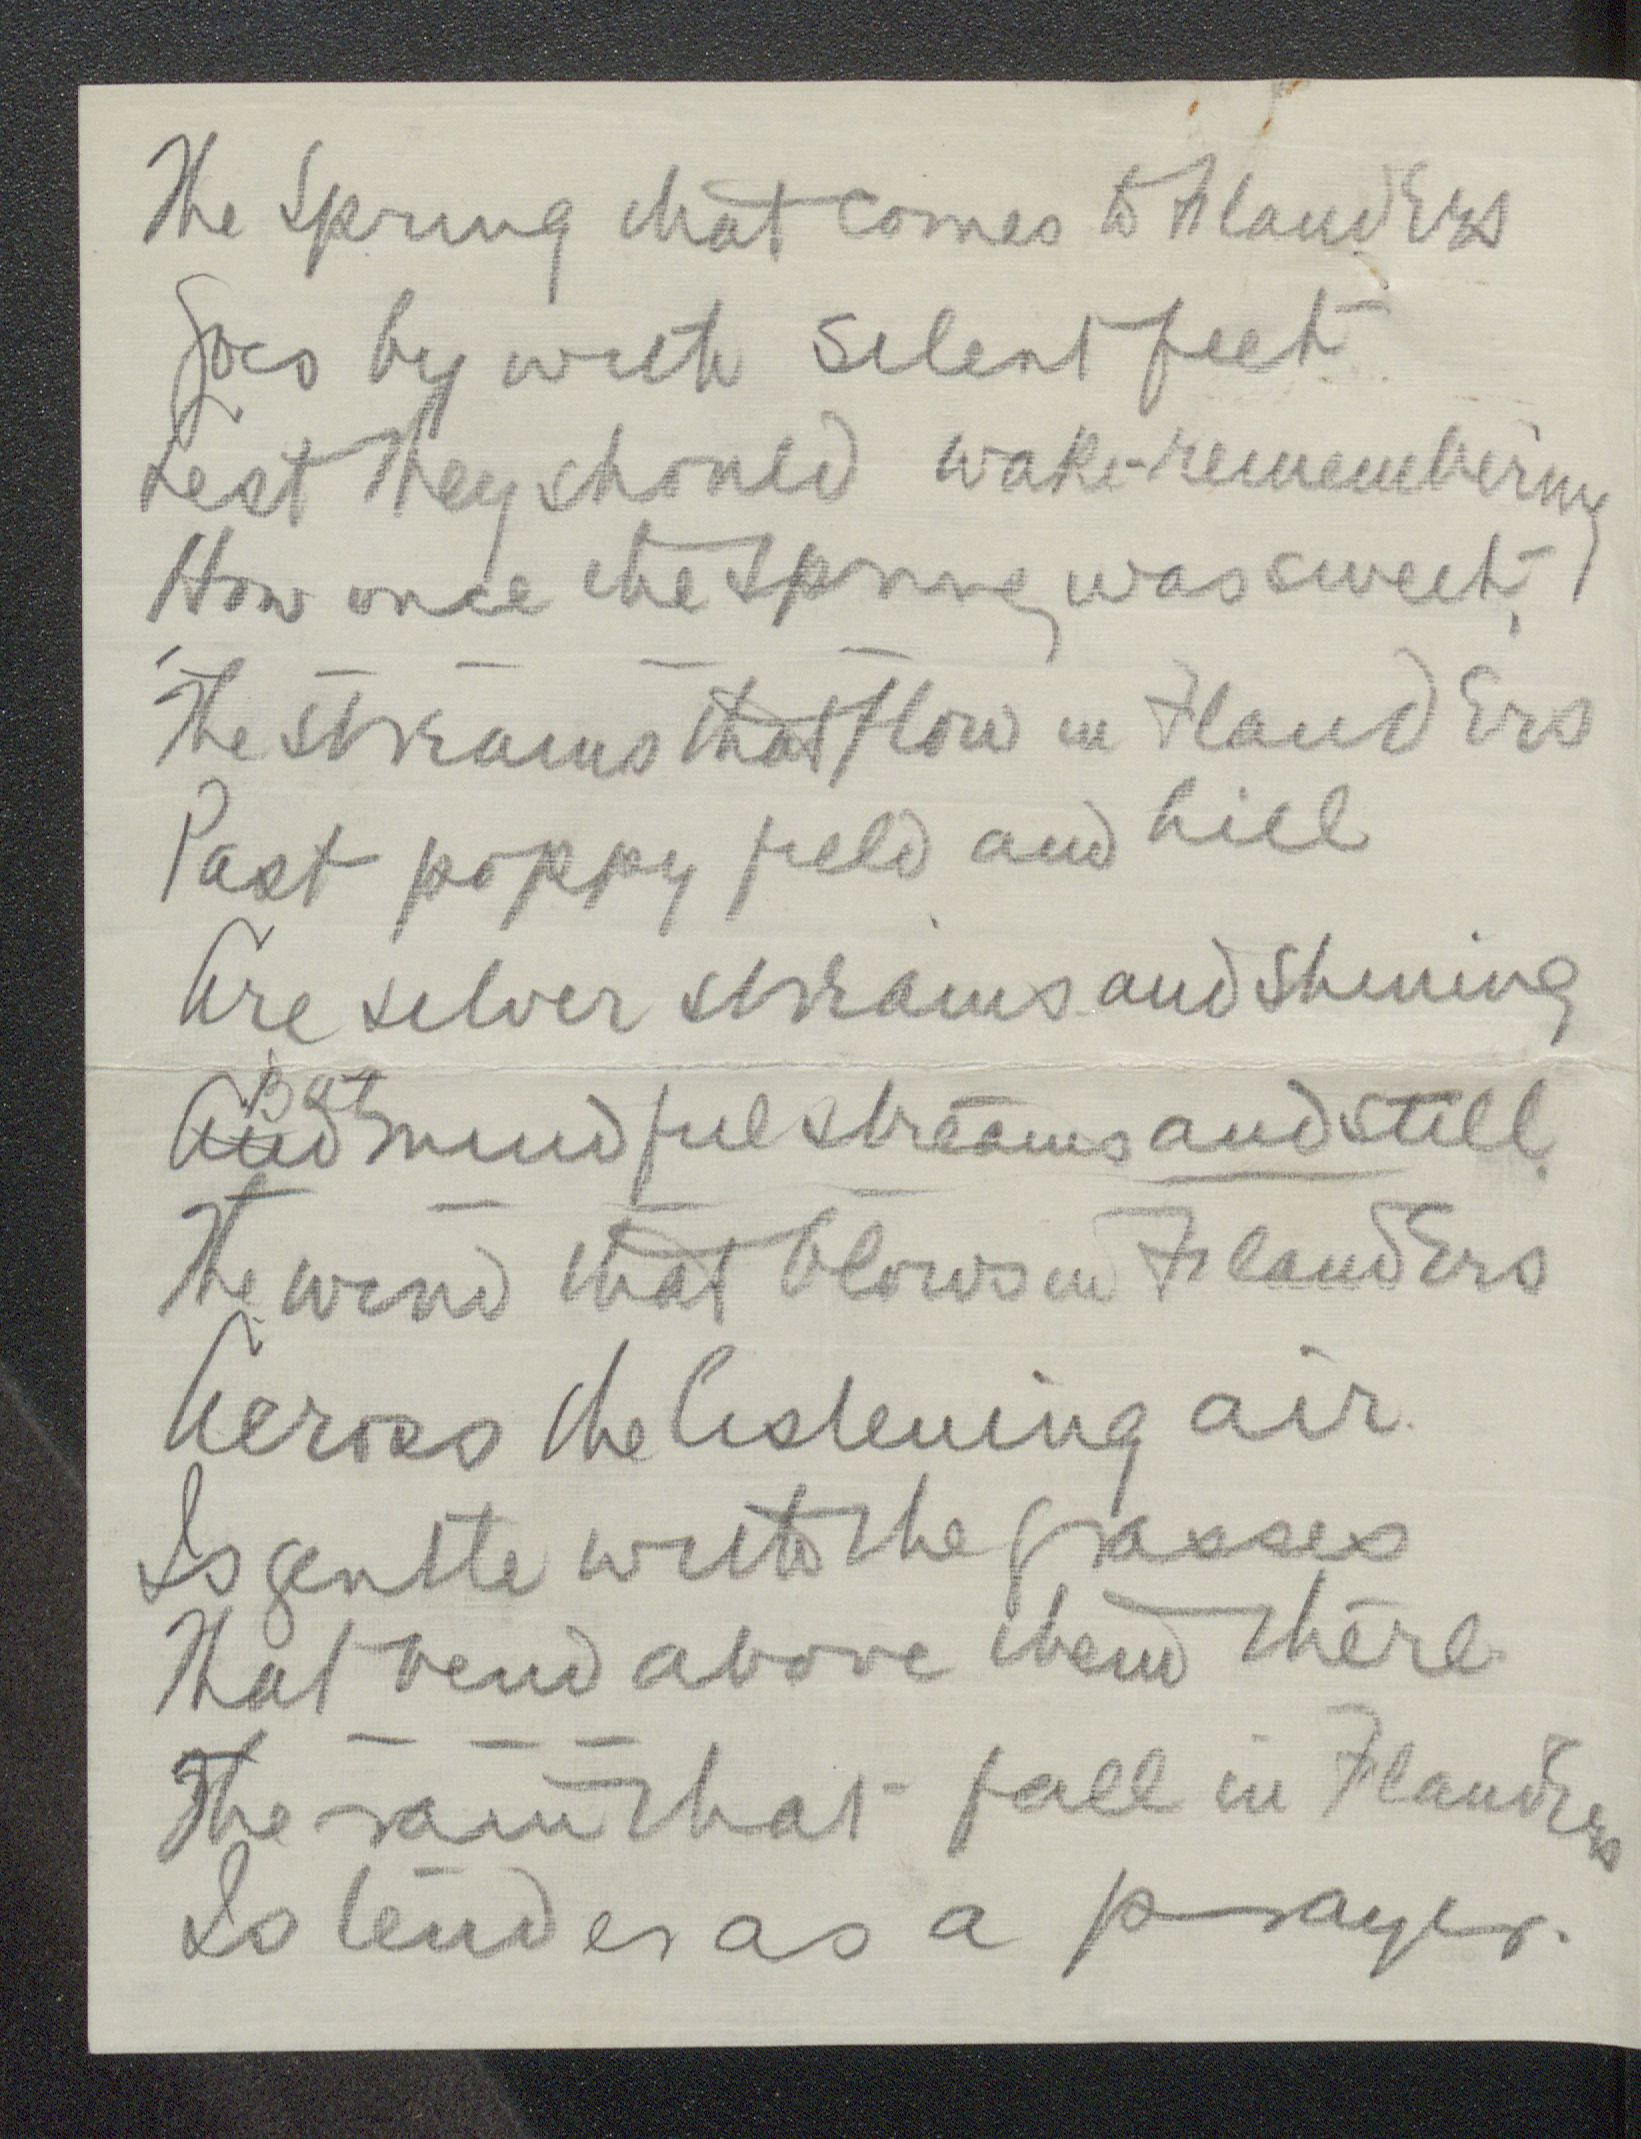 The Spring that comes to Flanders
Goes by with silent feet
Lest they should wake-remembering
How once the Spring was sweet,
The streams that flow in Flanders
Past poppy field and hill
Are silver streams and shining
But
And mindful streams and still.
The wind that blows in Flanders
Across the listening air.
Is gentle with the grasses
That bend above them there.
The rain that fall in Flanders
Is tender as a prayer.